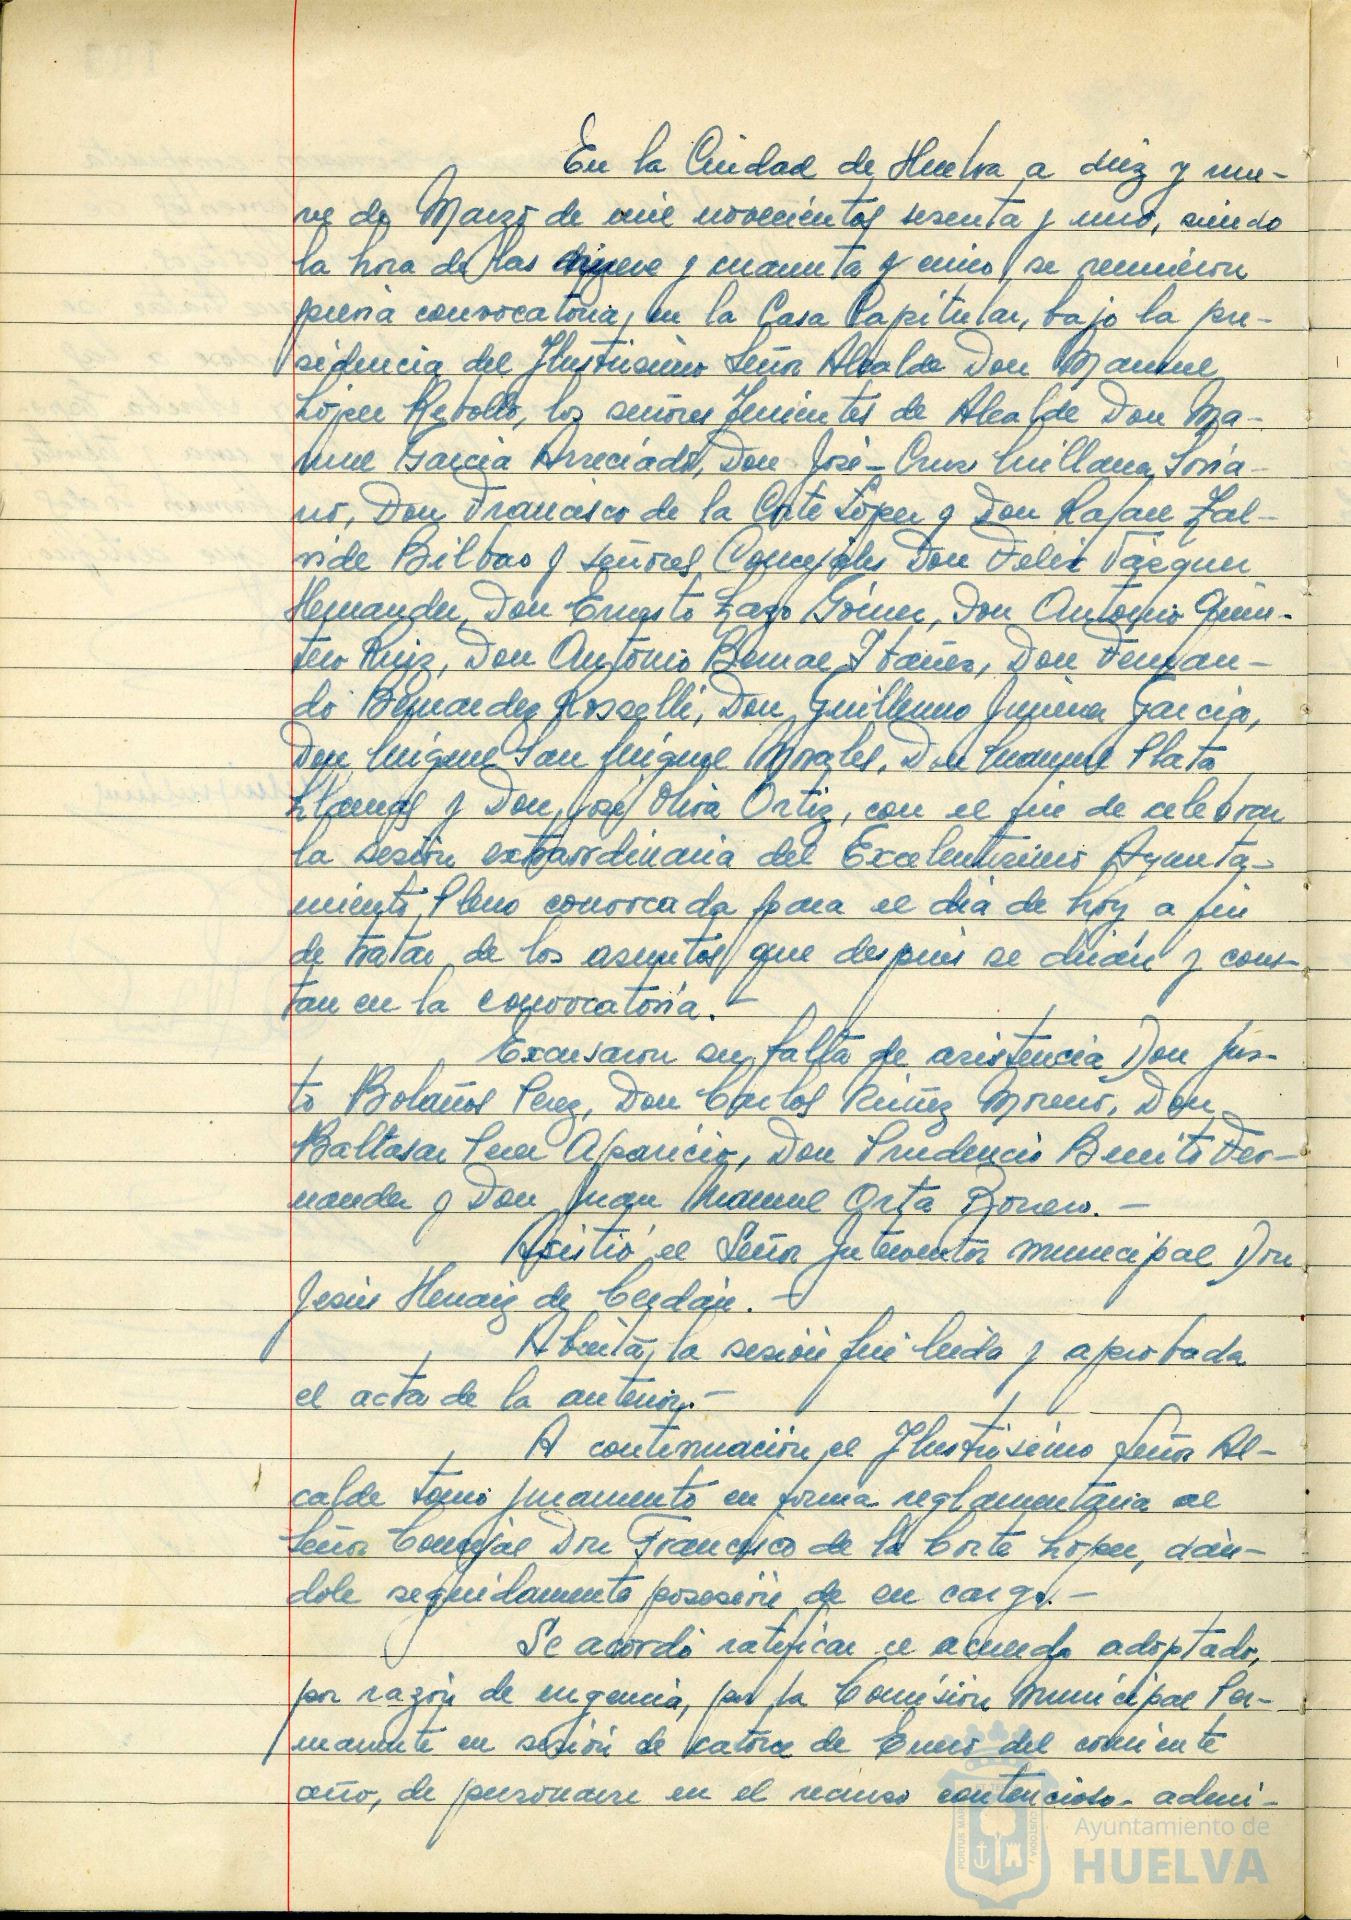 En la Ciudad de Huelva a diez y nue-
ve de Marzo de mil novecientos sesenta y uno, siendo
la hora de las y cuarenta y cinco, se reunieron
previa convocatoria, en la Casa Capitular, bajo la pre-
sidencia del Ilustrisimo Señor Alcalde Don Manuel
López Rebollo, los señores Tenientes de Alcalde Don Ma-
nuel Garcia Arreciado, Don José-Cruz Millana Soria-
no, Don Francisco de la Corte López y Don Rafael Zal-
vide Bilbao y señores Concejales Don Felix Vázquez
Hernandez, Don Ernesto Lazo Gómez, Don Antonio Quin-
tero Ruiz, Don Antonio Bernal Ibañez, Don Fernan-
do Bernardez Rosselli, Don Guillermo Jimenez Garcia,
Don Miguel San Miguel Morales, Don Manuel Plata
Llanes y Don José Oliva Ortiz, con el fin de celebrar
la sesión extraordinaria del Excelentisimo Ayunta-
miento Pleno convocada para el dia de hoy a fin
de tratar de los asuntos que después se dirán y cons-
tan en la convocatoria.-
Excusaron su falta de asistencia Don Jus-
to Bolaños Perez, Don Carlos Núñez Moreno, Don
Baltasar Perez Aparicio, Don Prudencio Benito Fer-
nandez y Don Juan Manuel Orta Borrero.-
Asistió el Señor Interventor municipal Don
Jesús Henaiz de Cerdán.-
Abierta la sesión fué leida y aprobada
el acta de la anterior.-
A continuación el Ilustrisimo Señor Al-
calde tomó juramento en forma reglamentaria al
Señor Concejal Don Francisco de la Corte López, dán-
dole seguidamente posesión de su cargo.-
Se acordó ratificar el acuerdo adoptado,
por razón de urgencia, por la Comisión Municipal Per-
manente en sesión de catorce de Enero del corriente
año, de personarse en el recurso contencioso-admi-
Ayuntamiento de
HUELVA